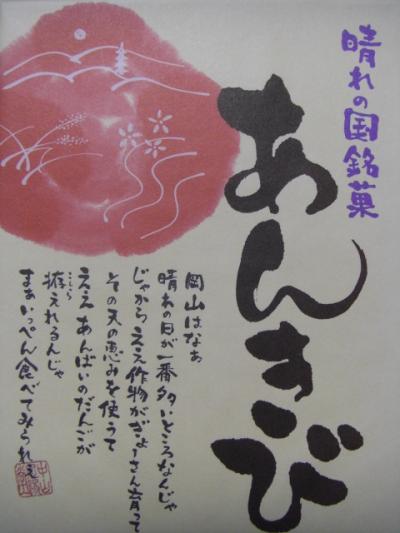 晴れの国銘菓
あんきび
岡山はなぁ
晴れの日が一番多いところなんじゃ
じゃから、ええ作物がぎょーさん育って
その天の恵みを使うて
ええあんばいのだんごが
拵えれるんじゃ
こしら
まぁいっぺん食べてみられぇ